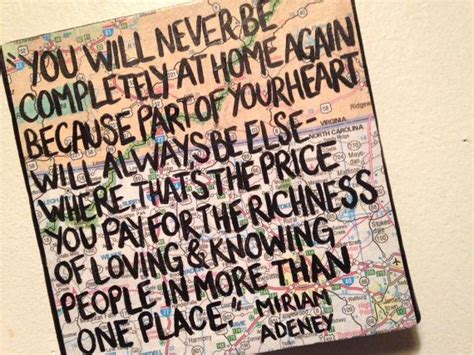 "YOU WILL NEVER BE
COMPLETELY AT HOME AGAIN
BECAUSE PART OF YOUR HEART
WILL ALWAYS BE ELSE-
WHERE. THAT'S THE PRICE
YOU PAY FOR THE RICHNESS
OF LOVING & KNOWING
PEOPLE IN MORE THAN
ONE PLACE." MIRIAM
ADENEY
VIRGINIA
NORTH CAROLINA